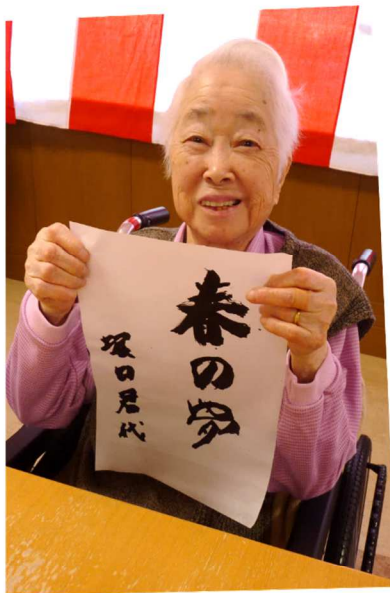 春の夢
塚口君代